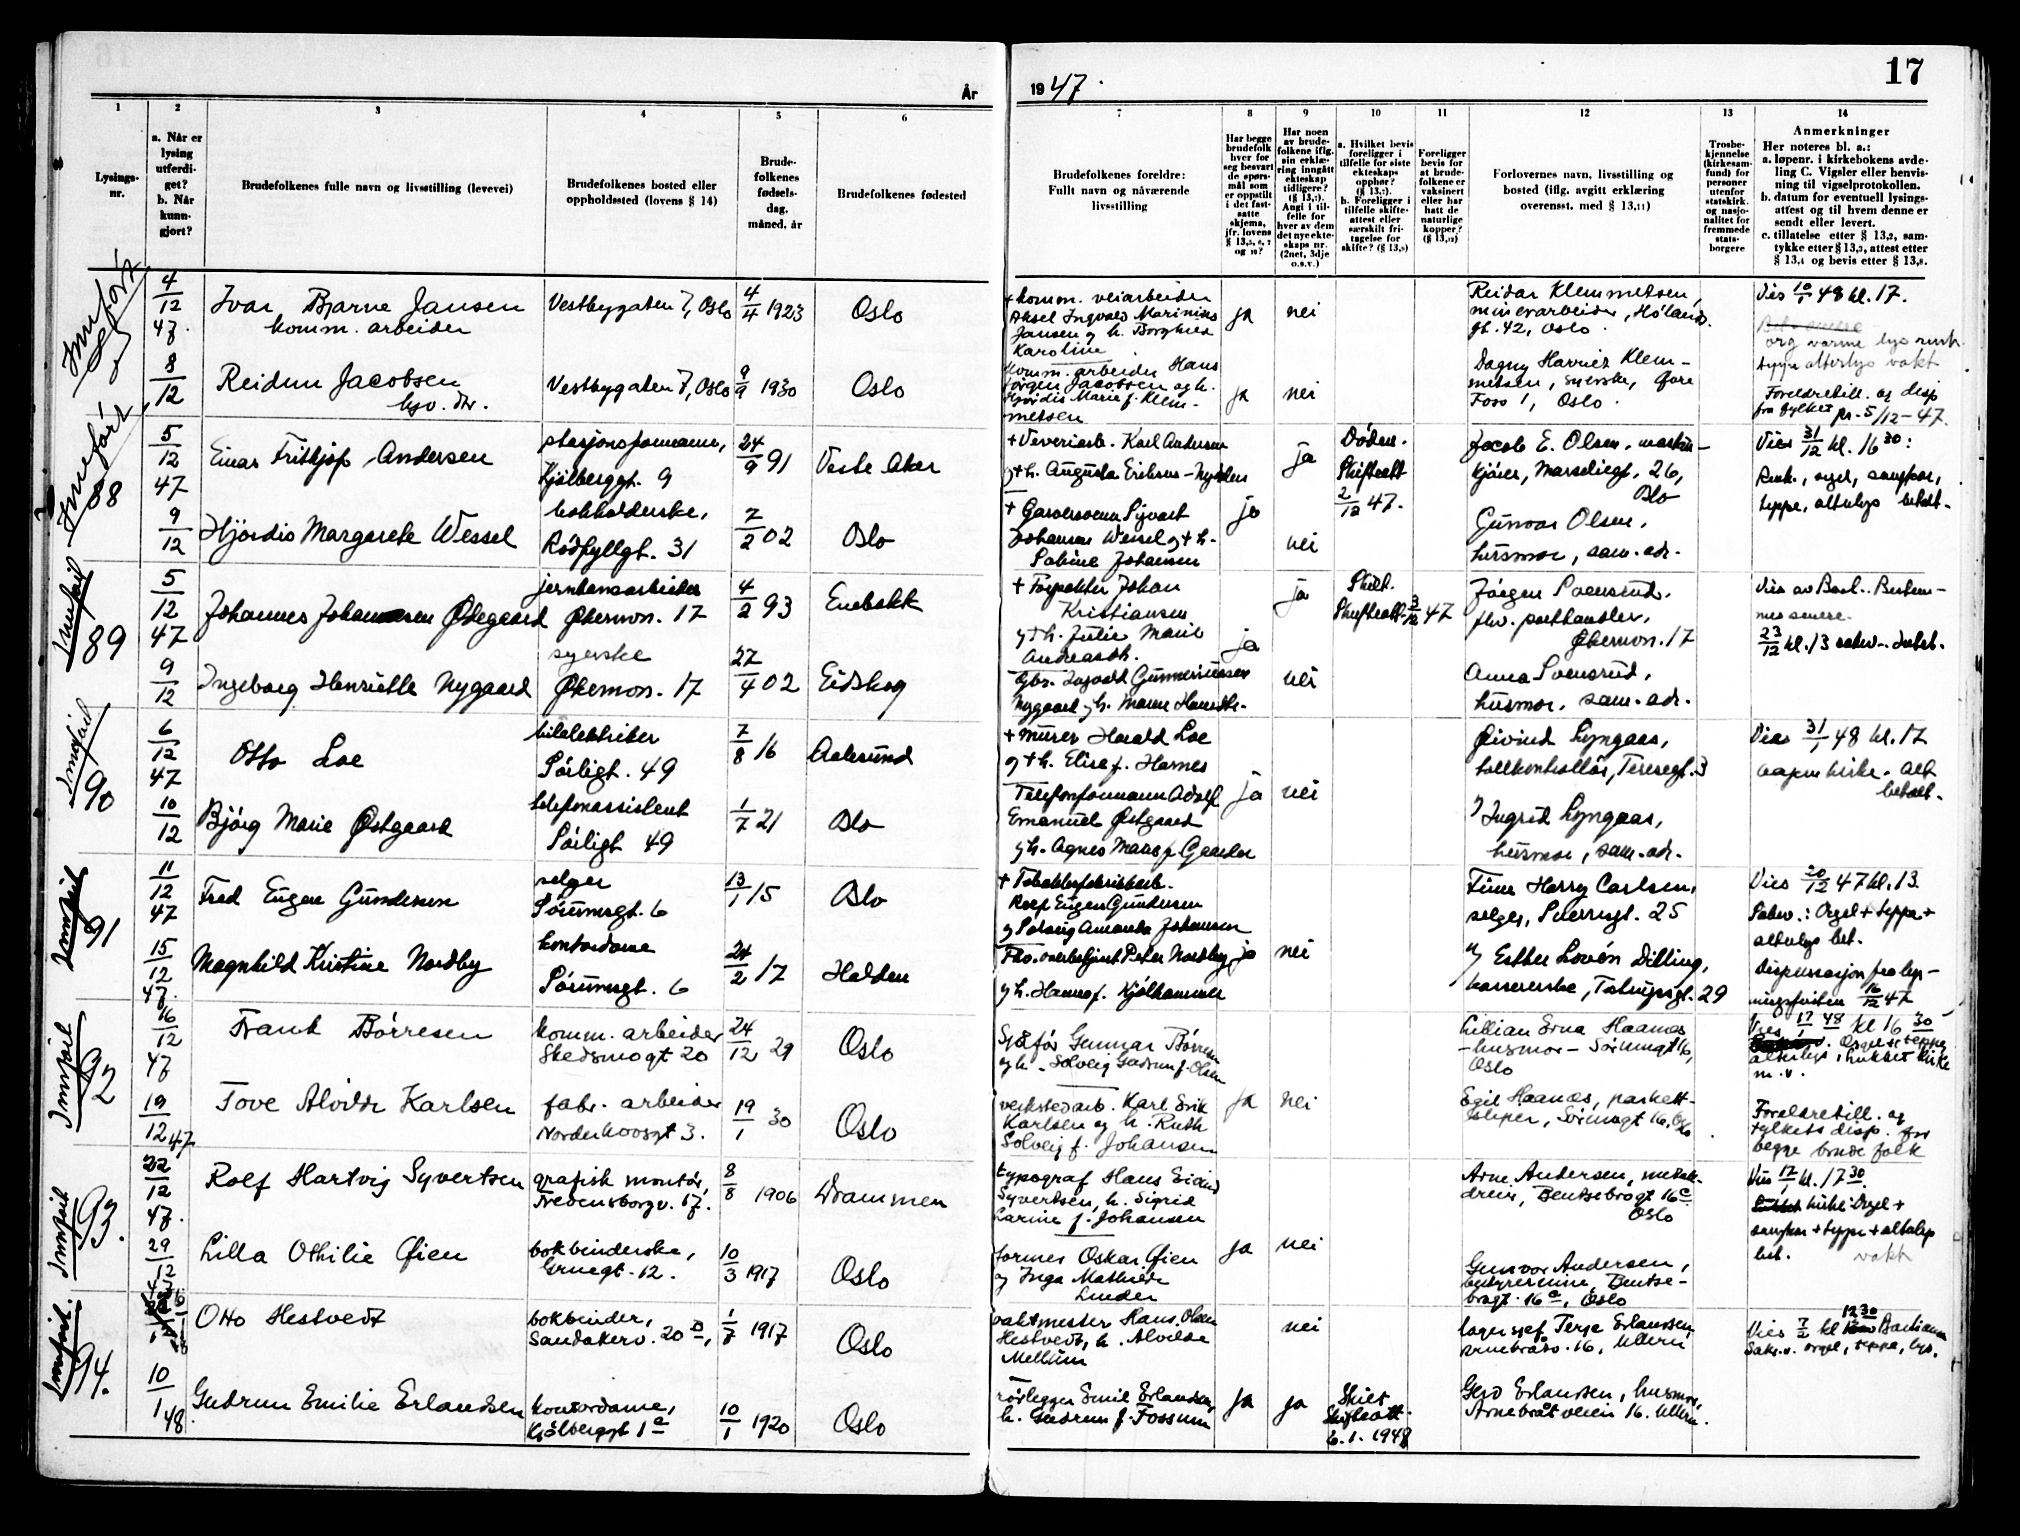 År
1947.
17
1
2
3
4
5
6
7
8
9
10
11
12
13
14
Lysings-
nr.
a. Når er
lysing
utferdi-
get?
b. Når
kunn-
gjort?
Brudefolkenes fulle navn og livsstilling (levevei)
Brudefolkenes bosted eller
oppholdssted (lovens § 14)
Brude-
folkenes
fødsels-
dag,
måned, år
Brudefolkenes fødested
Brudefolkenes foreldre:
Fullt navn og nåværende
livsstilling
Har begge
brudefolk
hver for
seg besvart
de spørs-
mål som
er oppstilt
i det fast-
satte
skjema,
jfr. lovens
Har noen
av brude-
folkene iflg.
sin erklæ-
ring inngått
ekteskap
tidligere?
Angi i til-
felle for
hver av dem
det nye ekte-
skaps nr.
(2net, 3dje
o.s.v.)
a. Hvilket bevis
foreligger i
tilfelle for siste
ekteskaps
opphør?
b. Foreligger i
tilfelle skifte-
attest eller
særskilt fri-
tagelse for
skifte?
Foreligger
bevis for
at brude-
folkene er
vaksinert
eller har
hatt de
naturlige
kopper?
(§ 13,12)
Forlovernes navn, livsstilling og
bosted (iflg. avgitt erklæring
overensst. med § 13,11)
Trosbe-
kjennelse
(kirkesam-
fund) for
personer
utenfor
statskirk.
og nasjo-
nalitet for
fremmede
stats-
borgere
Anmerkninger
Her noteres bl. a.:
a. løpenr. i kirkebokens avde-
ling C. Vigsler eller henvis-
ning til vigselprotokollen.
b. datum for eventuell lysings-
attest og til hvem denne er
sendt eller levert.
c. tillatelse etter § 13,2, sam-
tykke etter § 13,3, attest etter
§ 13,4 og bevis etter § 13,8.
Innført
4/12 47.
Ivar Bjarne Jansen
komm. arbeider
Vestbygaten 7, Oslo
4/4 1923
Oslo
+ komm. veiarbeider
Aksel Ingvald Marinius
Jansen og h. Borghild
Karoline
ja
nei
Reidar Klemmetsen,
minerarbeider, Hølands
gt. 42, Oslo.
Vies 10/1 48 kl. 17.
8/12
Reidun Jacobsen
Vestbygaten 7, Oslo
9/9 1930
Oslo
komm. arbeider Hans
Jørgen Jacobsen og h.
Hjørdis Marie f. Klem-
metsen
ja
nei
Dagny Harriet Klem-
metsen, syerske,
Foss 1, Oslo.
org varme lys
teppe alterlys vakt
Foreldretill. og disp
fra fylket pr. 5/12-47.
Innført
88
5/12 47
Einar Fritkjof Andersen
stasjonsformann,
Kjølberggt. 9
24/9 91
Vestre Aker
+ Veveriarb. Karl Andersen
ja
Døden.
Skifteatt
2/12 47.
Jacob E. Olsen, maskin-
kjører, Marseliegt. 26,
Oslo
Vies 31/12 kl. 16 30:
teppe, alterlys betalt.
9/12
Hjørdis Margarete Wessel
bokholderske,
Rødfyllgt. 31
7/2 02
Oslo
+ Garversvenn Sigvart
Johansen Wessel og + h.
Sabine Johansen
ja
nei
Gunvor Olsen,
husmor, sam. adr.
Innført
89
5/12 47
Johannes Johannesen Ødegaard
jernbanearbeider
Økernvn. 17
4/2 93
Enebakk
+ Forpakter Johan
Kristiansen
og + h. Julie Marie
Andreasdt.
ja
ja
Skilt.
Skifteatt. 3/12 47
Jørgen Svensrud,
fhv. posthandler,
Økernvn. 17
23/12 kl. 13
9/12
Ingeborg Henriette Nygaard
syerske
Økernvn. 17
27/4 02
Eidskog
nei
Anna Svensrud,
husmor, sam. adr.
Innført
90
6/12 47
Otto Loe
bilelektriker
Sørligt. 49
7/8 16
Aalesund
+ Murer Harald Loe
og + h. Elise f. Harnes
ja
nei
Øivind Lyngaas,
tollkontrollør, Teresegt. 3
Vies 31/1 48 kl. 17
kirke. Alt
betalt.
10/12
Bjørg Marie Østgaard
telefonassistent
Sørligt 49
1/7 21
Oslo
Telefonformann Adolf
Emanuel Østgaard
og h. Agnes
Ingrid Lyngaas,
husmor, sam. adr.
Innført
91
11/12 47
Fred Eugen Gundersen
selger
Sørumsgt. 6
13/1 15
Oslo
+ Tobakksfabrikkarb.
Rolf Eugen Gundersen
og Solveig Amanda Johansen
Finn Harry Carlsen,
selger, Sverresgt. 25
Vies 20/12 47 kl. 13.
Sakr.: Orgel + teppe +
alterlys bet.
15/12 47.
Magnhild Kristine Nordby
kontordame
Sørumsgt. 6
24/2 17
Halden
og h. Hanna f. Kjølhammer
ja
nei
Esther Lovén Dilling,
kassererske, Tostrupsgt. 29
Dispensasjon fra lys-
ningsfristen 16/12 47
Innført
92
16/12 47
Frank Børresen
komm. arbeider
Skedsmogt 20
24/12 29
Oslo
Sjåfør Gunnar Børresen
og h. Solveig Gudrun f. Olsen
Lillian Erna Haanæs
-husmor- Sørumgt 16,
Oslo
Vies 17/1 48 kl 16 30
Orgel + teppe
alterlys, lukket kirke
m.v.
19/12 47
Tove Alvilde Karlsen
fabr. arbeider
Norderhovsgt 3.
19/1 30
Oslo
verkstedarb. Karl Erik
Karlsen og h. Ruth
Solveig f. Johansen
ja
nei
Egil Haanæs, parkett-
sliper, Sørumgt 16, Oslo
Foreldretill. og
fylkets disp. for
begge brude folk
Innført
93.
22/12 47.
Rolf Hartvig Syvertsen
grafisk montør,
Fredensborgv. 17.
8/8 1906
Drammen
typograf Hans Eivind
Syvertsen, h. Sigrid
Larine f. Johansen
Arne Andersen, metall-
dreier, Bentsebrogt 16c
Oslo
Vies 17/1 kl. 17 30.
kirke: Orgel +
sangkor + teppe + alterlys
bet. vakt
29/12
Lilla Othilie Øien
bokbinderske,
Gruegt. 12.
10/3 1917
Oslo
former Oskar Øien
og Inga Mathilde
Linder
ja
nei
Gunvor Andersen,
Bentse-
brogt. 16c, Oslo
Innført.
94.
Otto Hestvedt
bokbinder,
Sandakerv. 20 D,
1/7 1917
Oslo
vaktmester Hans Olsen
Hestvedt, h. Alvilde
Mellum
nei
lagersjef Terje Erlandsen
16, Ullern
Vies 7/2 kl 12 30
Sakr. orgel, teppe, lys.
10/1 48
Gudrun Emilie Erlandsen
kontordame,
Kjølberggt 1a
10/1 1920
Oslo
rørlegger Emil Erlandsen,
h. Gudrun f. Fossum
ja
ja
Skilt
Skifteatt.
6.1.1948
Gerd Erlandsen, husmor,
Arnebråtveien 16. Ullern.